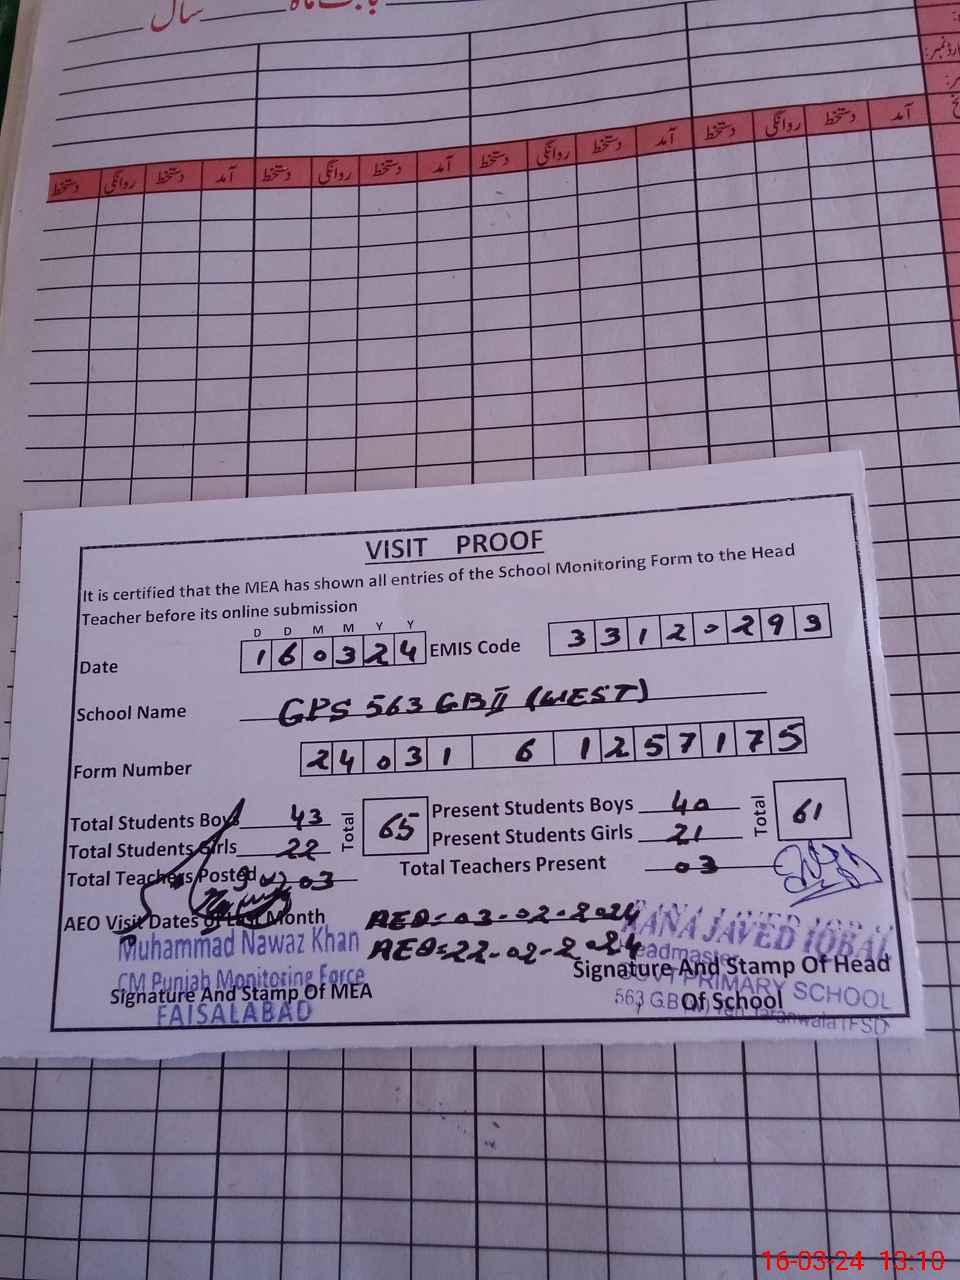 بابت ماہ ______ سال ______
آمد دستخط روانگی دستخط آمد دستخط روانگی دستخط آمد دستخط روانگی دستخط آمد دستخط روانگی دستخط
VISIT PROOF
It is certified that the MEA has shown all entries of the School Monitoring Form to the Head
Teacher before its online submission
D D M M Y Y
Date 160324 EMIS Code 33120293
School Name GPS 563 GB II (WEST)
Form Number 24031 6 1257175
Total Students Boys 43 Total 65 Present Students Boys 40 Total 61
Total Students Girls 22 Present Students Girls 21
Total Teachers Posted 03 Total Teachers Present 03
AEO Visit Dates of Last Month AEO=03-02-2024
AEO=22-02-2024
Muhammad Nawaz Khan
CM Punjab Monitoring Force
FAISALABAD
Signature And Stamp Of MEA
RANA JAVED IQBAL
Headmaster
GOVT PRIMARY SCHOOL
563 GB (W) Teh. Jaranwala FSD
Signature And Stamp Of Head
Of School
16-03-24 13:10